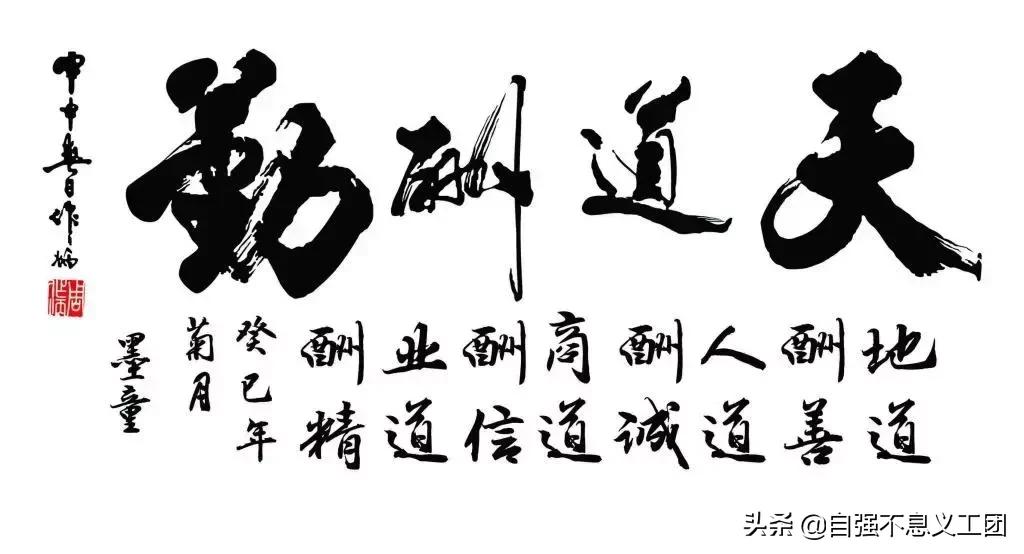 天道酬勤
甲申春日作炳
地道酬善
人道酬诚
商道酬信
业道酬精
癸巳年
菊月
墨童
头条 @自强不息义工团